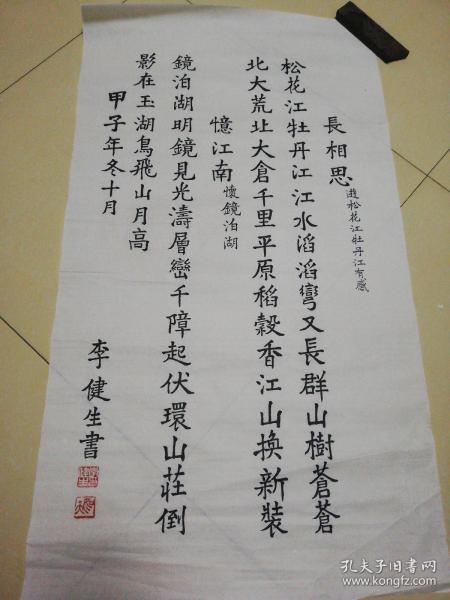 長相思 遊松花江牡丹江有感
松花江牡丹江江水滔滔彎又長群山樹蒼蒼
北大荒北大倉千里平原稻穀香江山換新裝
憶江南 懷鏡泊湖
鏡泊湖明鏡見光濤層巒千障起伏環山莊倒
影在玉湖鳥飛山月高
甲子年冬十月
李健生書
孔夫子旧书网
www.kongfz.com